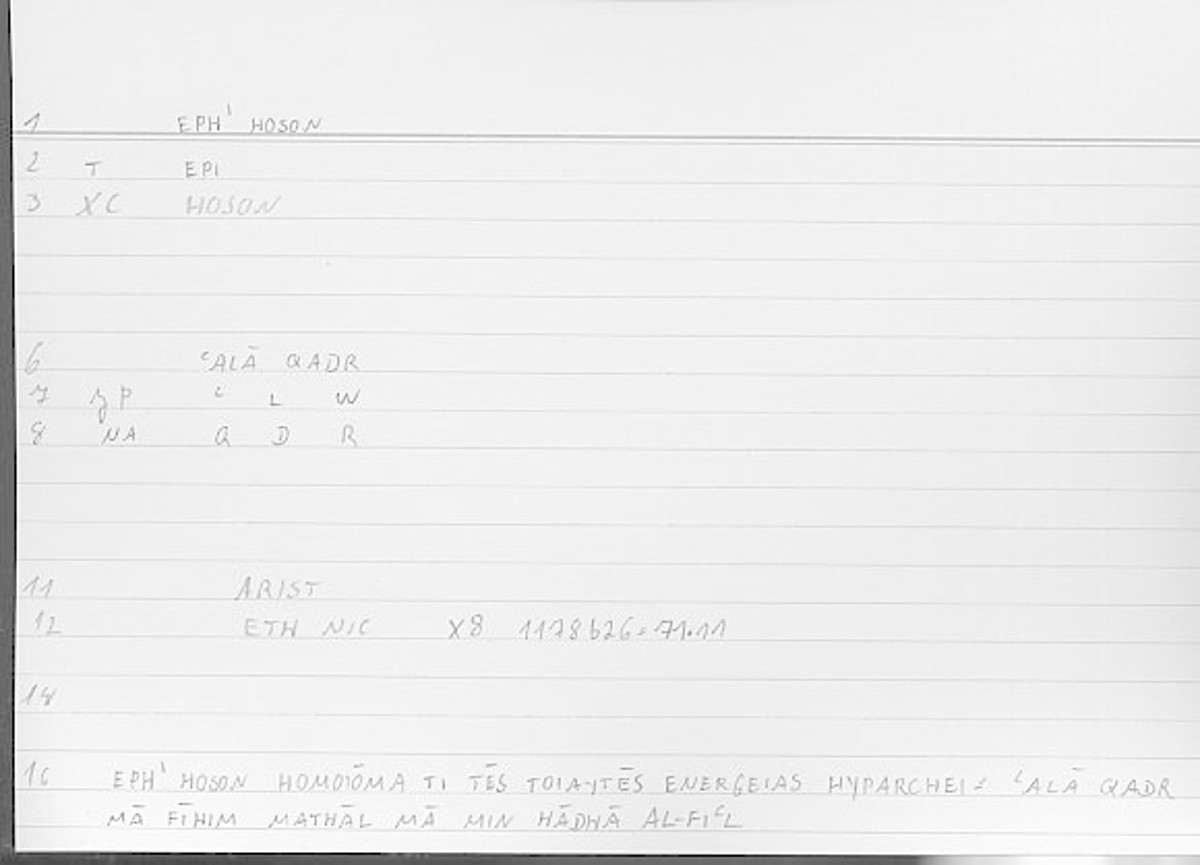 1 EPH' HOSON
2 T EPI
3 XC HOSON
6 ʿALĀ QADR
7 ʿ L W
8 NA Q D R
11 ARIST
12 ETH NIC X8 1178b26=71.11
14
16 EPH' HOSON HOMOIŌMA TI TĒS TOIAYTĒS ENERGEIAS HYPARCHEI= ʿALĀ QADR
MĀ FĪHIM MATHĀL MĀ MIN HĀDHĀ AL-FIʿL